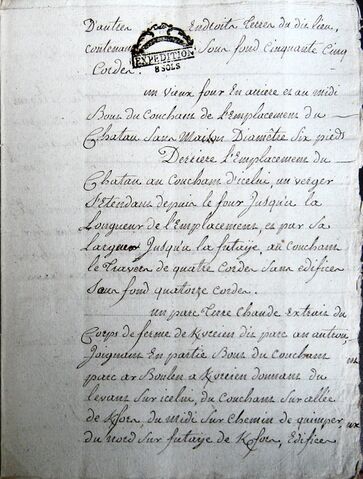 Dautres Endroits Terres du dit lieu,
contenant Sous fond cinquante cinq
Cordes.
EXPEDITION
8 SOLS
un vieux four En arriere et au midi
Bout du couchant de l'Emplacement du
Chatau Sans Diametre Six pieds
Derriere l'Emplacement du
Chatau au Couchant d'icelui, un verger
S'etendant depuis le four Jusqu'a la
Longueur de l'Emplacement, et par sa
Largeur Jusqu'a la futaye, au Couchant
le Travers de quatre Cordes Sans edifices
Sous fond quatorze Cordes.
un parc Terre Chaude Extrait du
Corps de ferme de dit parc an
Joignant En partie Bout du Couchant
parc ar Boulen a donnant du
levant sur icelui, du Couchant sur allée
de du midi sur Chemin de quimper,
du nord sur futaye de Edifices